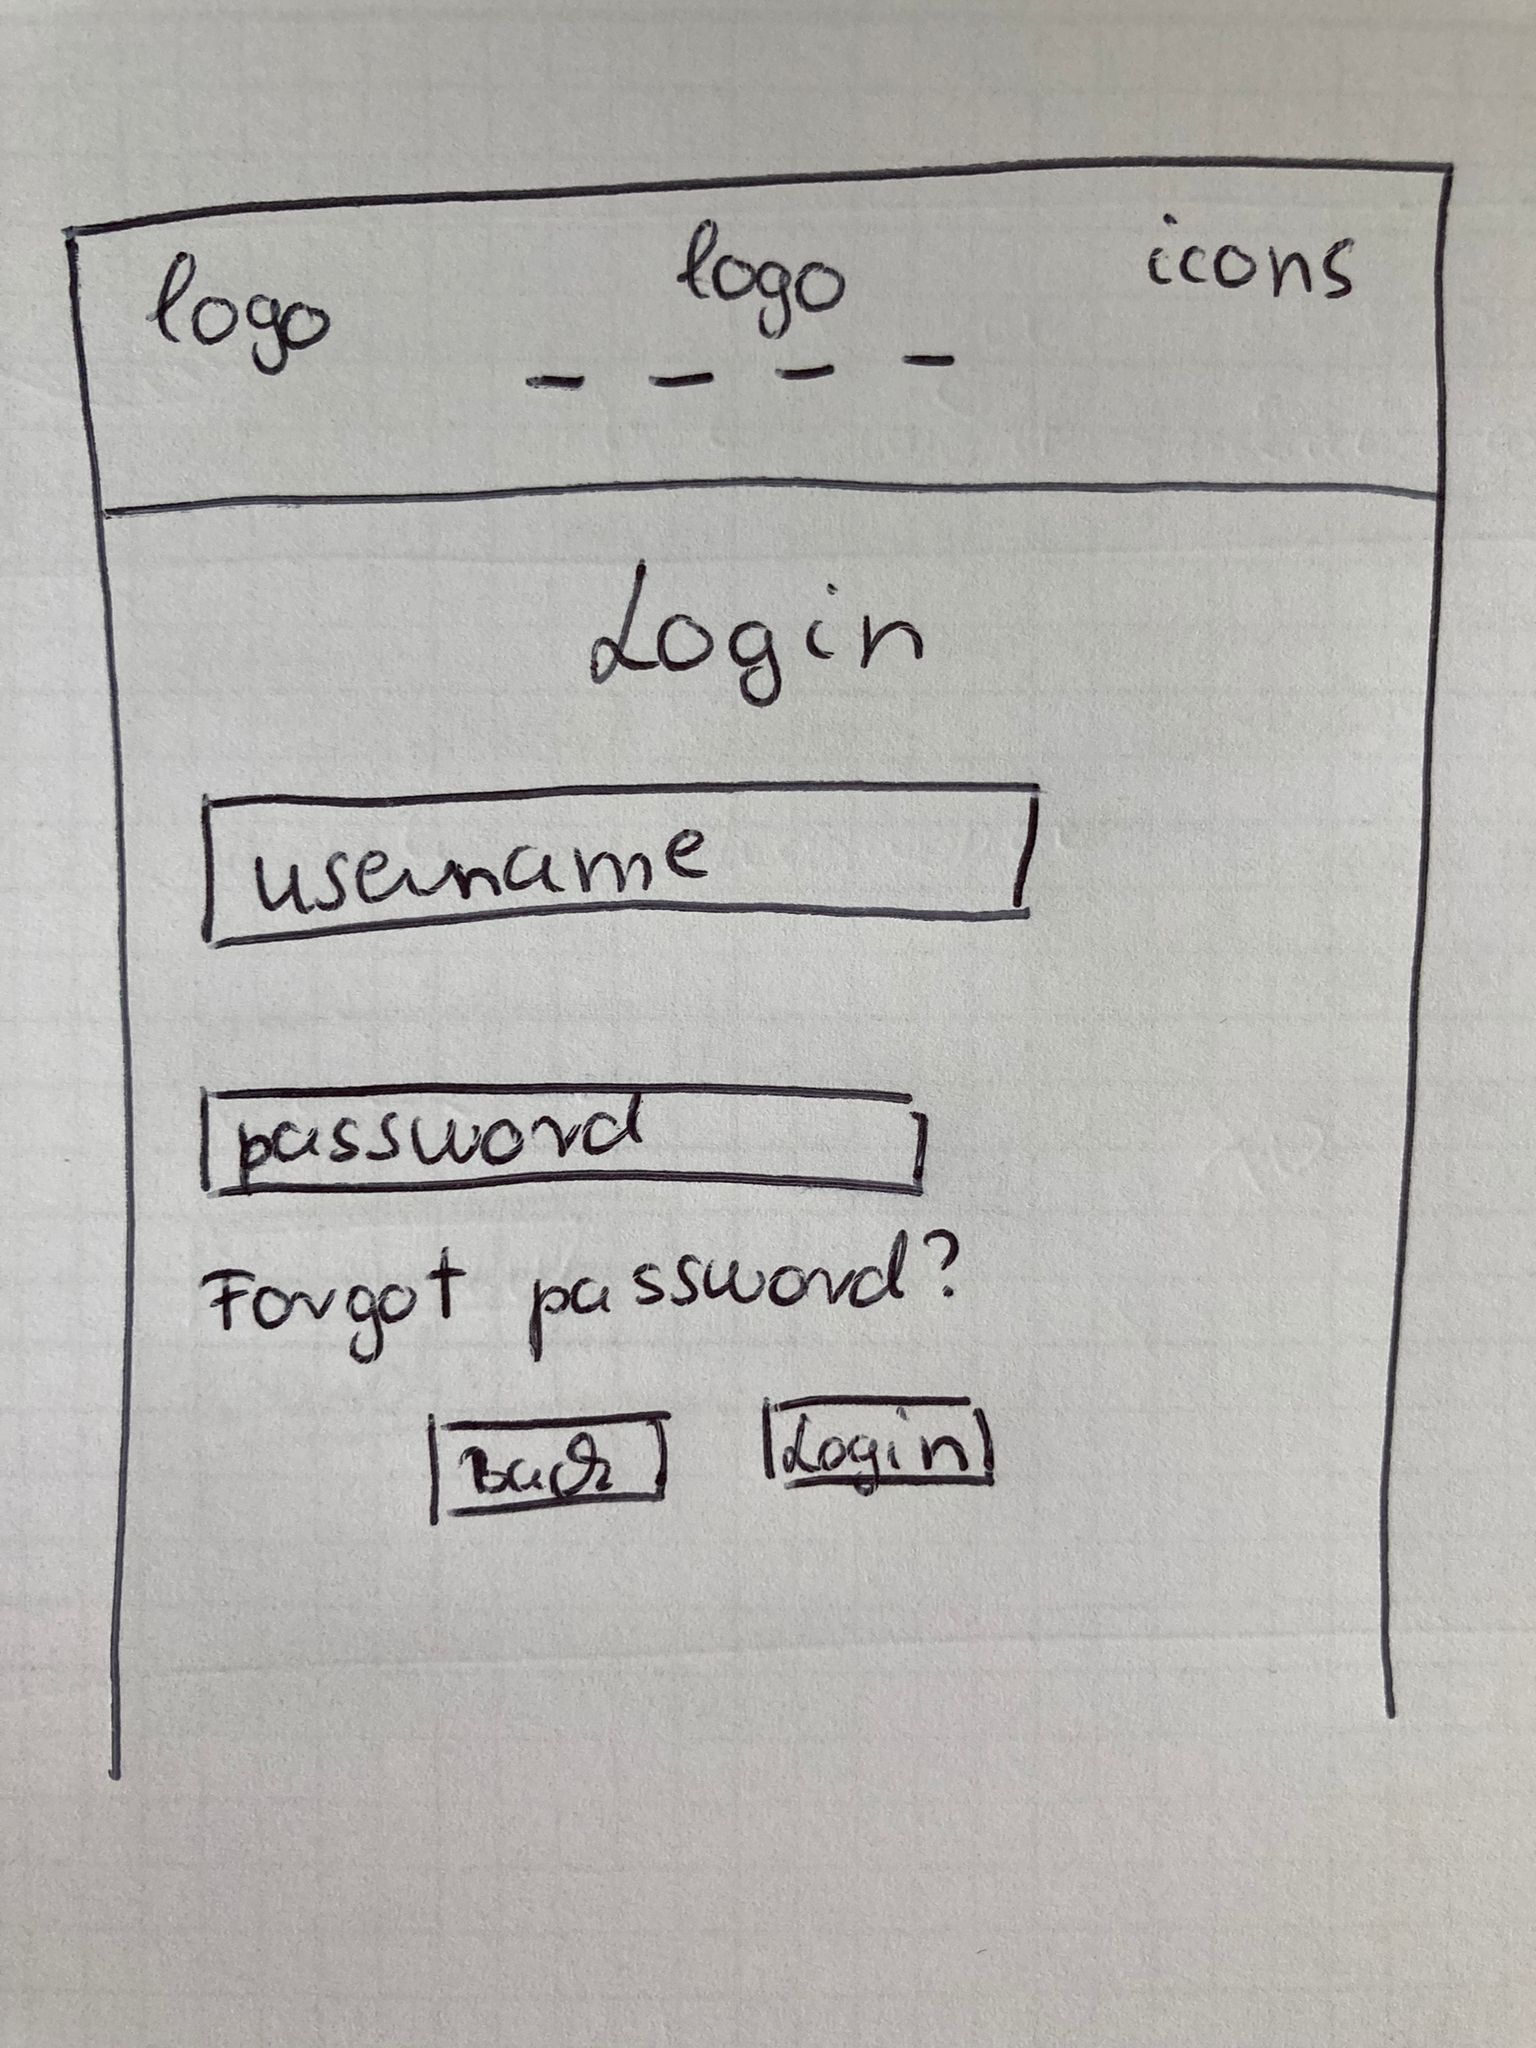 logo logo icons
Login
username
password
Forgot password?
Back Login